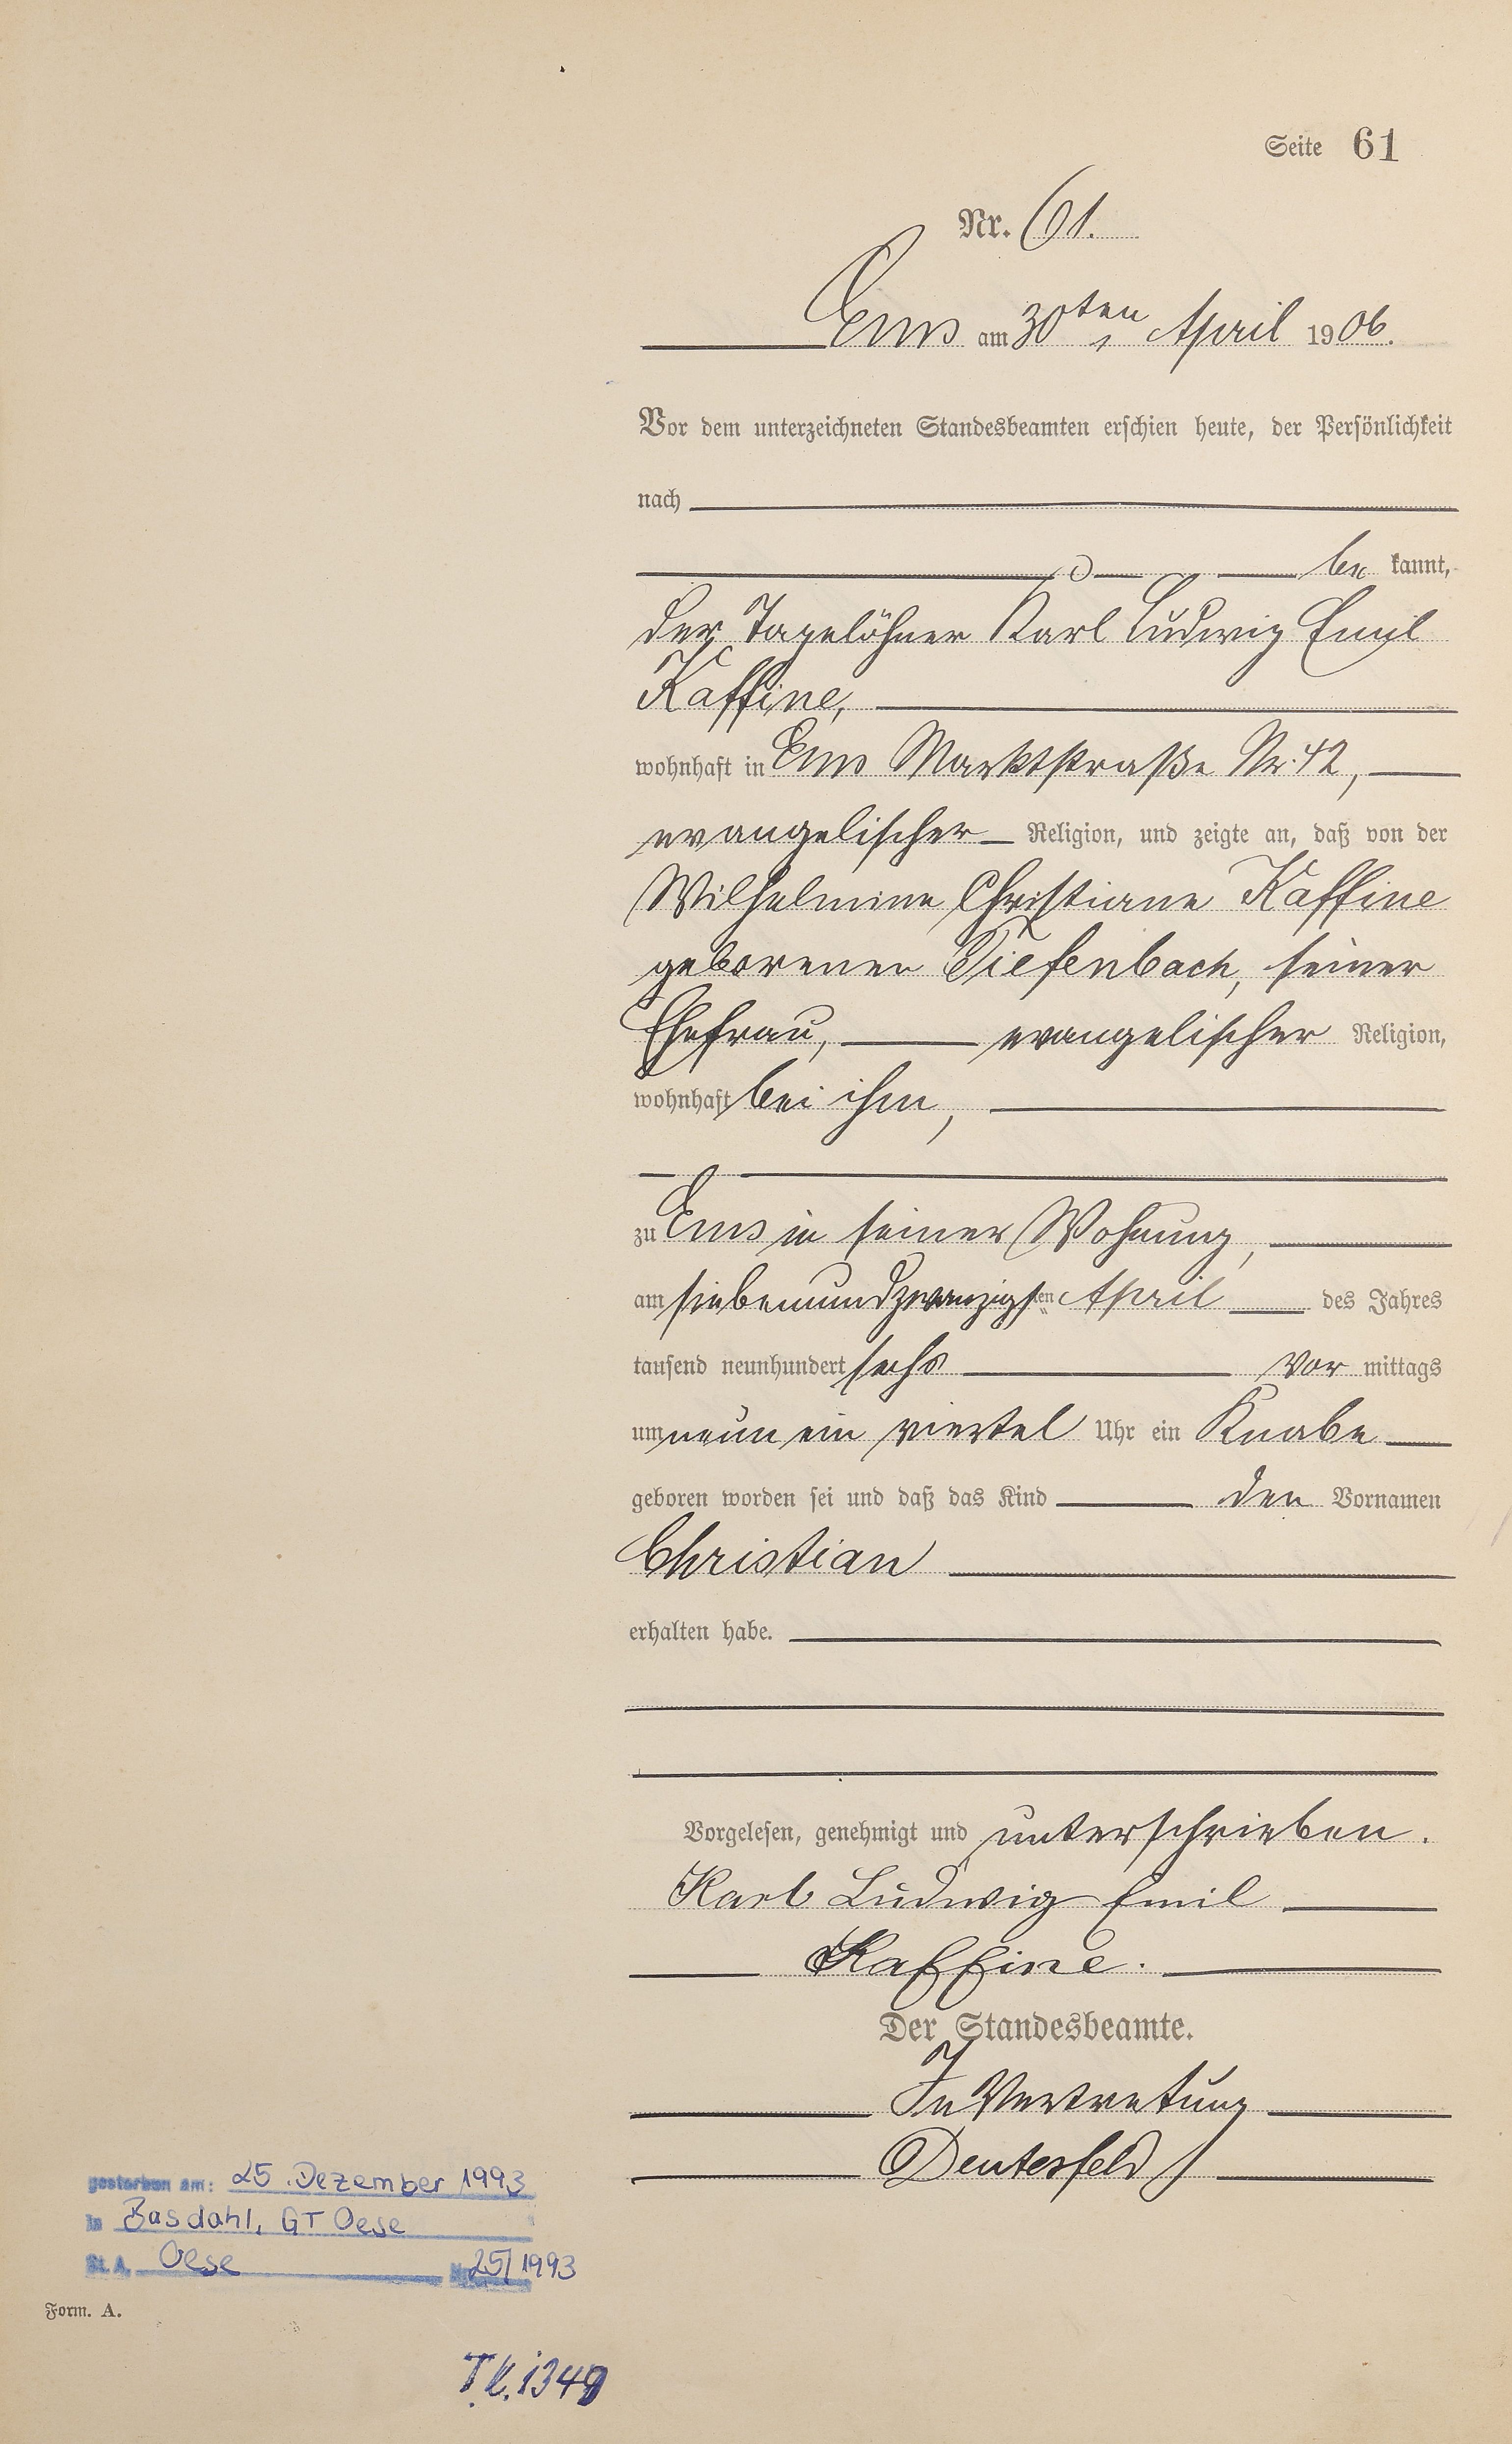 Seite 61
Nr. 61.
Ems am 30ten April 1906.
Vor dem unterzeichneten Standesbeamten erschien heute, der Persönlichkeit
nach
be kannt,
der Tagelöhner Karl Ludwig Emil
Kaffine,
wohnhaft in Ems Marktstraße Nr. 42,
evangelischer Religion, und zeigte an, daß von der
Wilhelmine Christiane Kaffine
geborenen Tiefenbach, seiner
Ehefrau, evangelischer Religion,
wohnhaft bei ihm,
zu Ems in seiner Wohnung,
am siebenundzwanzigsten April des Jahres
tausend neunhundert sechs vor mittags
um neun ein viertel Uhr ein Knabe
geboren worden sei und daß das Kind den Vornamen
Christian
erhalten habe.
Vorgelesen, genehmigt und unterschrieben.
Karl Ludwig Emil
Kaffine.
Der Standesbeamte.
In Vertretung
Deutesfeld
gestorben am: 25. Dezember 1993
in Basdahl, GT Oese
St. A. Oese Nr. 25/1993
Form. A.